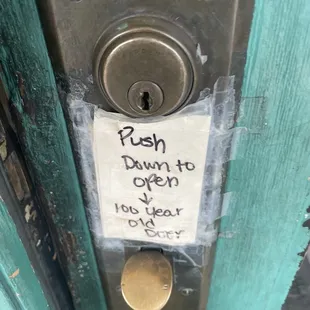 Push
Down to
open
↓
100 year
old
Door